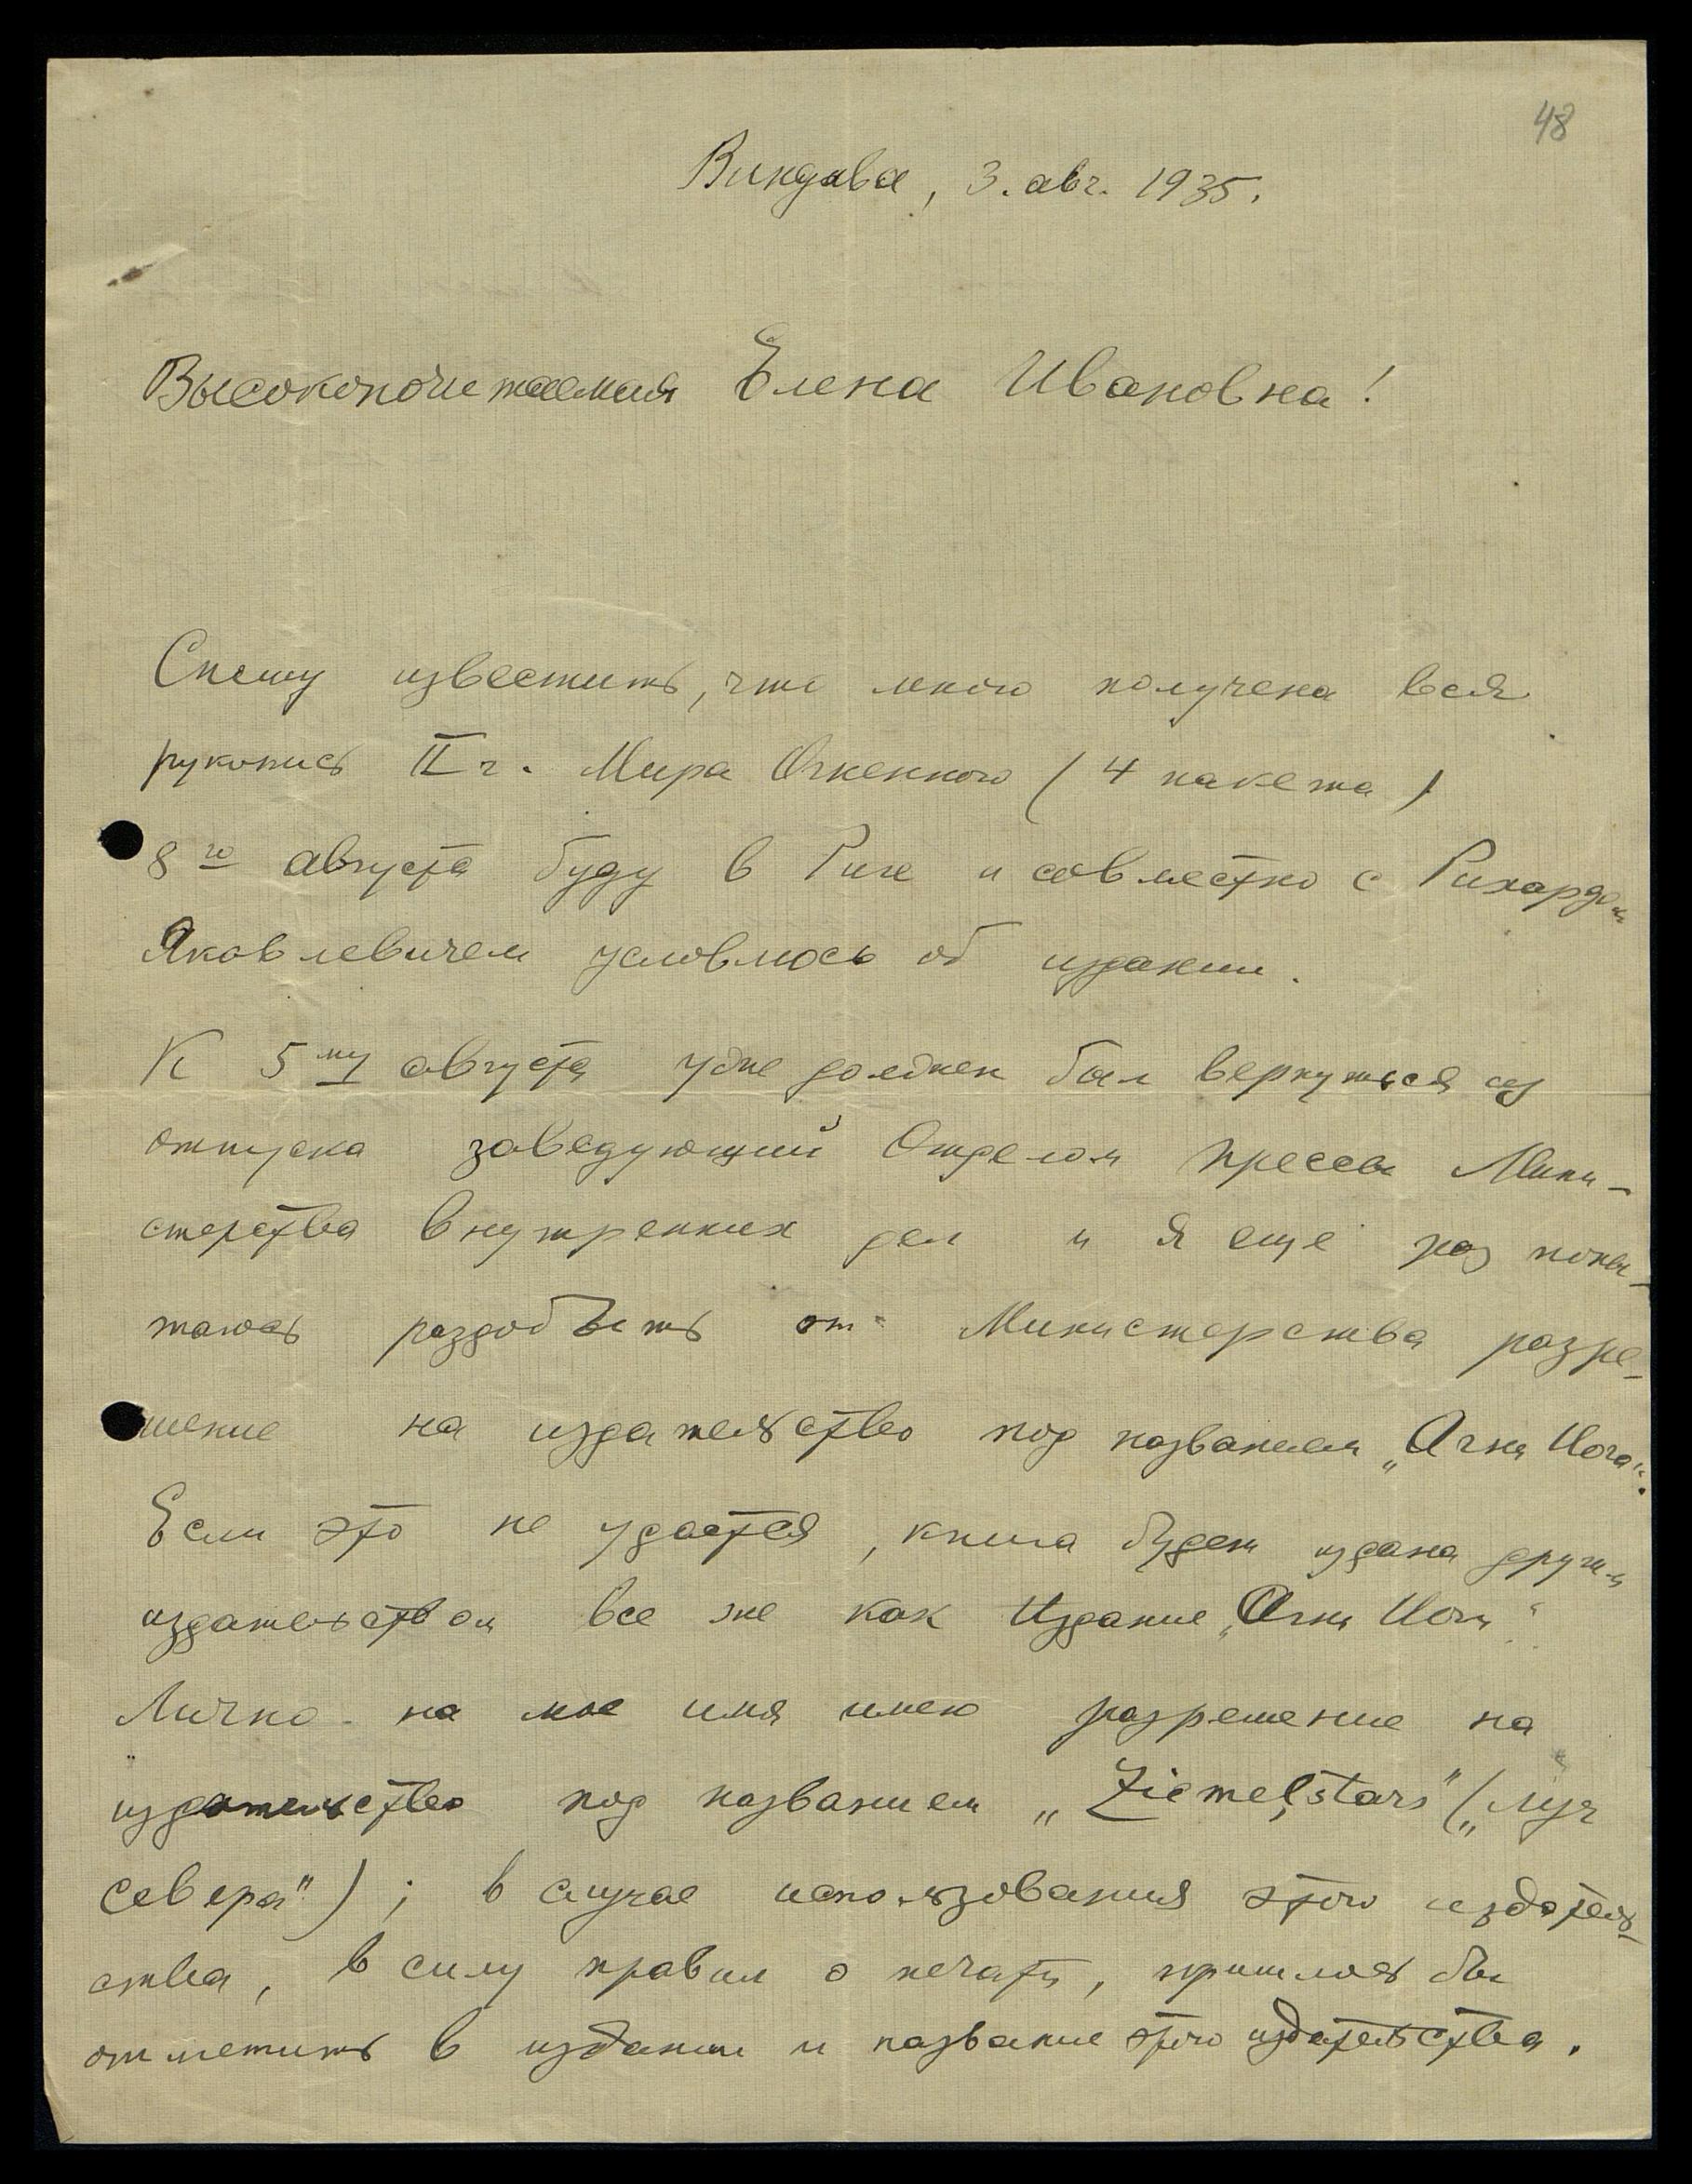 48
Виндава, 3. авг. 1935.
Высокопочитаемая Елена Ивановна!
Спешу известить, что мною получена вся
рукопись II ч. Мира Огненного (4 пакета)
8го августа буду в Риге и совместно с Рихардом
Яковлевичем условлюсь об издании.
К 5му августа уже должен был вернуться из
отпуска заведующий Отделом прессы Мини-
стерства внутренних дел и я еще раз попы-
таюсь раздобыть от Министерства разре-
шение на издательство под названием „Агни Йога“.
Если это не удастся, книга будет издана другим
издательством все же как Издание „Агни Йоги“
Лично на мое имя имею разрешение на
издательство под названием „Ziemeļstars” („Луч
севера”); в случае использования этого издатель-
ства, в силу правил о печати, пришлось бы
отметить в издании и название этого издательства.